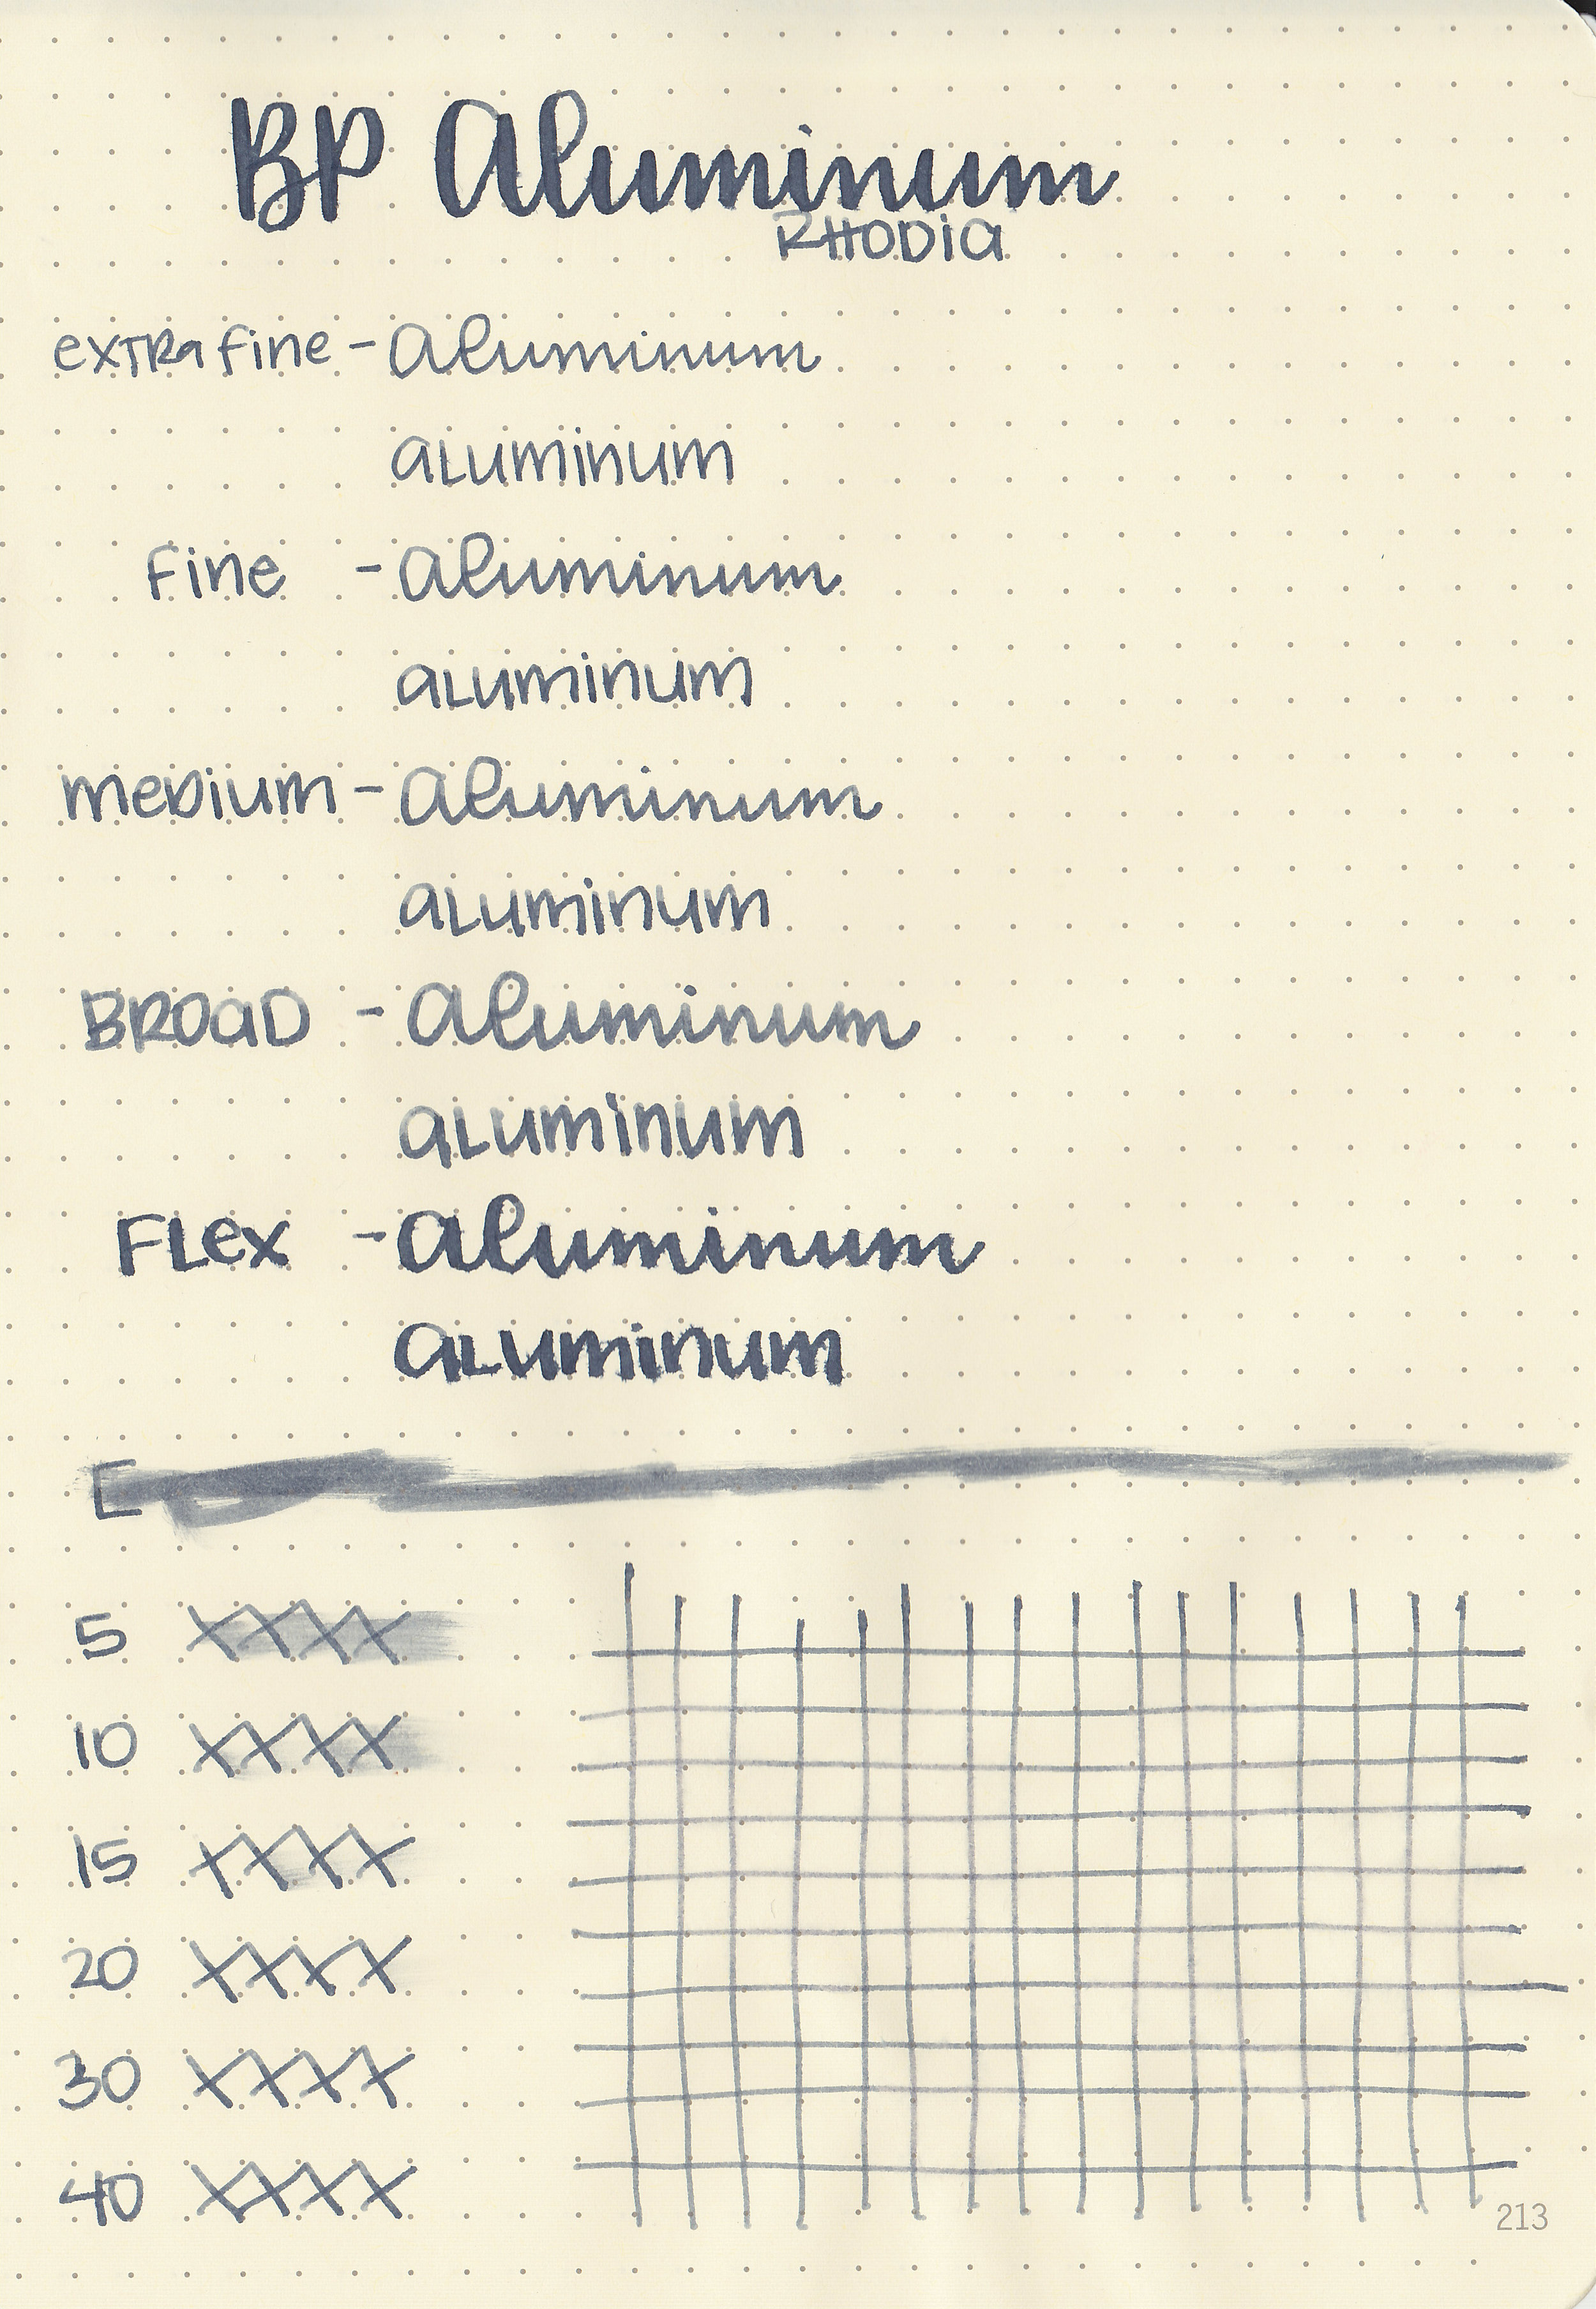 BP Aluminum
RHODIA
extra fine - Aluminum
aluminum
fine - Aluminum
aluminum
medium - Aluminum
aluminum
BROAD - Aluminum
aluminum
Flex - Aluminum
aluminum
E
5 XXXX
10 XXXX
15 XXXX
20 XXXX
30 XXXX
40 XXXX
213